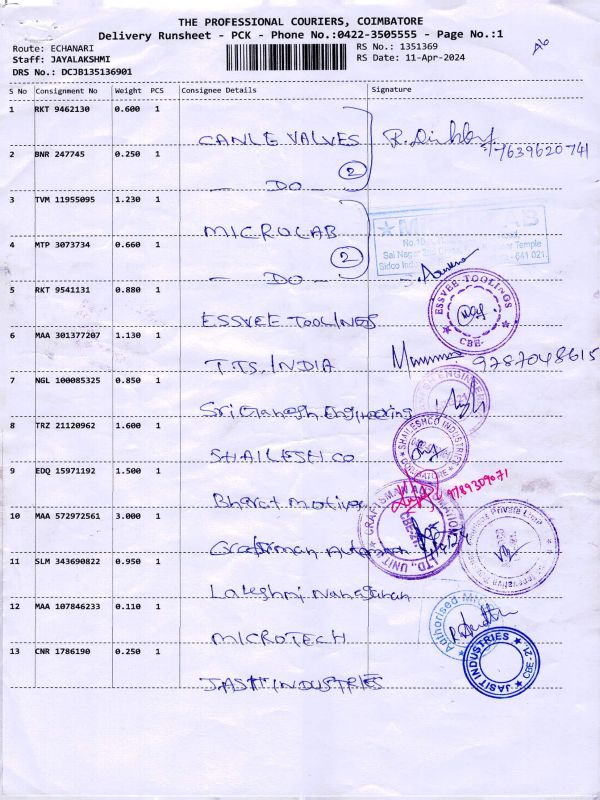 THE PROFESSIONAL COURIERS, COIMBATORE
Delivery Runsheet - PCK - Phone No.:0422-3505555 - Page No.:1
A6
Route: ECHANARI
Staff: JAYALAKSHMI
DRS No.: DCJB135136901
RS No.: 1351369
RS Date: 11-Apr-2024
S No Consignment No Weight PCS Consignee Details Signature
1 RKT 9462130 0.600 1
CANLE VALVES
7639620741
2 BNR 247745 0.250 1
2
DO
3 TVM 11955095 1.230 1
MICROLAB
4 MTP 3073734 0.660 1
2
Temple
Sai Nagar
Sidco Ind
641 021.
DO
5 RKT 9541131 0.880 1
ESSVEE TOOLINGS
ESSVEE TOOLINGS
CBE-
6 MAA 301377207 1.130 1
T.T.S. INDIA
9787048615
7 NGL 100085325 0.850 1
Sri Ganesh Engineering
8 TRZ 21120962 1.600 1
SHAILESH CO
SHAILESHCO INDUSTRIES
COIMBATORE
9 EDQ 15971192 1.500 1
Bharat motives
9789309071
10 MAA 572972561 3.000 1
Craftsman Automation
CRAFTSMAN AUTOMATION
LTD., UNIT
CBE-21
Private
11 SLM 343690822 0.950 1
Lakshmi
12 MAA 107846233 0.110 1
MICROTECH
Authorised
13 CNR 1786190 0.250 1
JASIT INDUSTRIES
JASIT INDUSTRIES
CBE-21